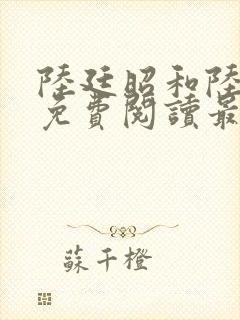 陸廷昭和陸
免費閱讀最
蘇千橙